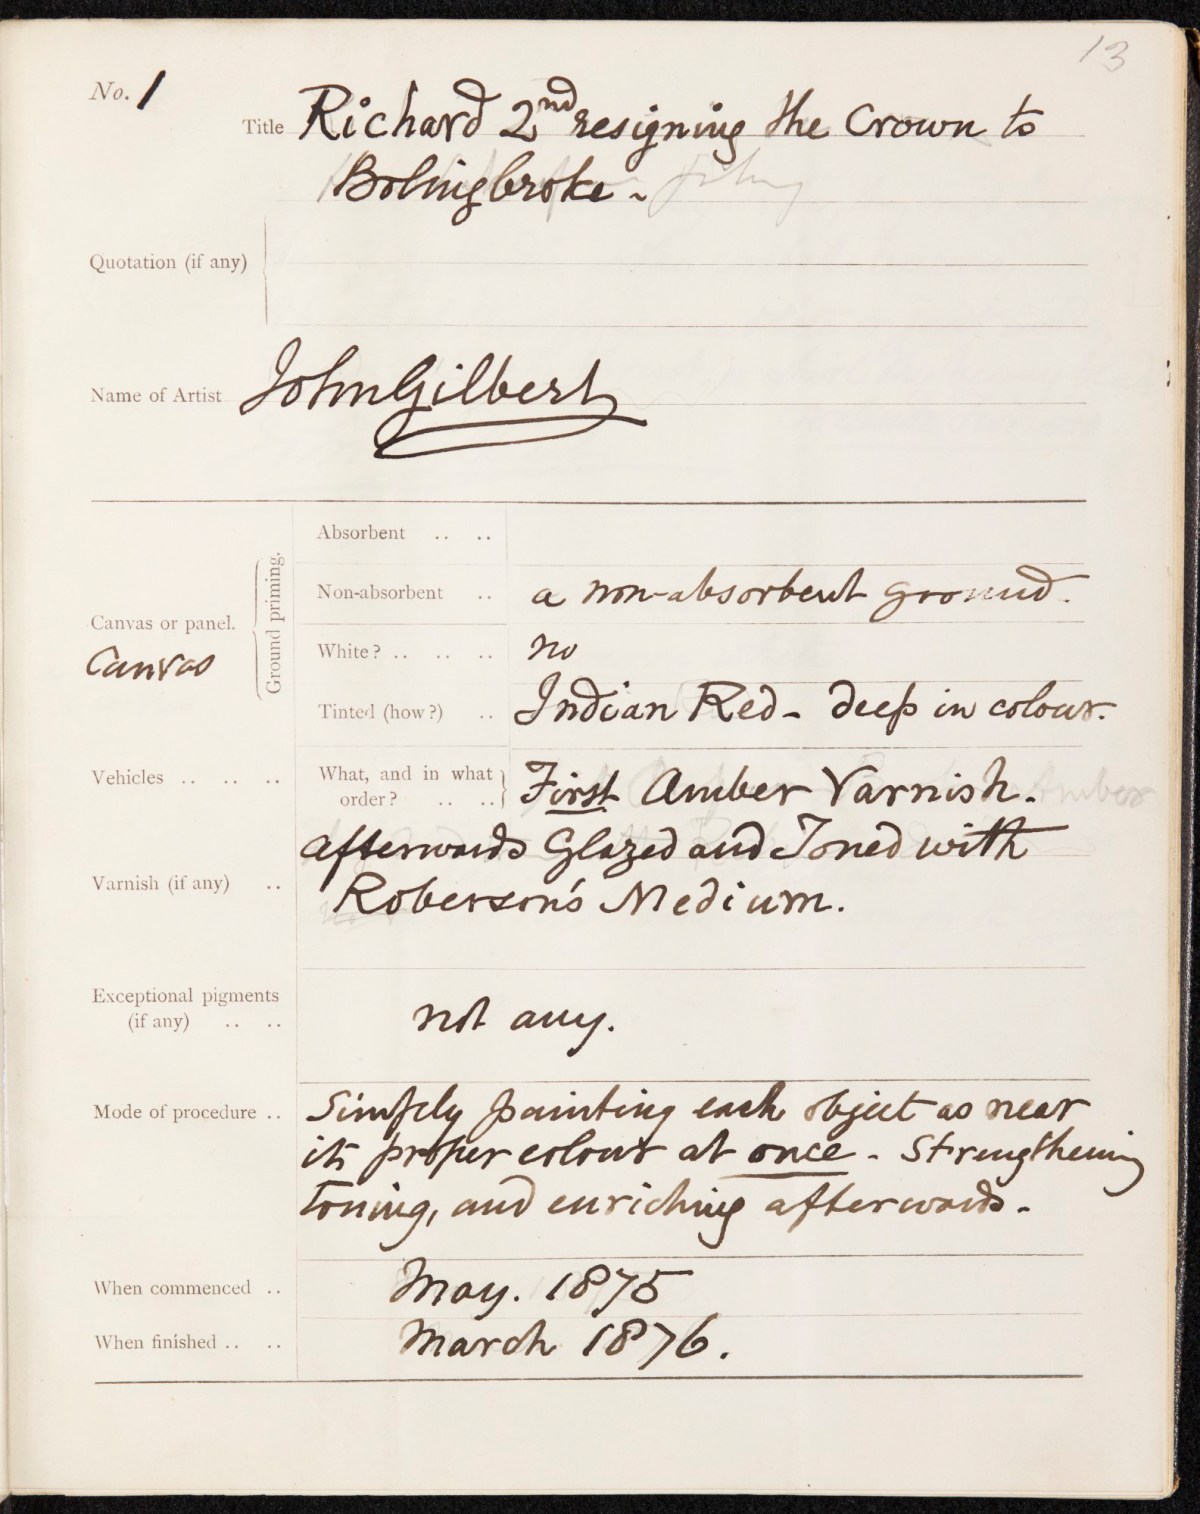 13
No. 1
Title Richard 2nd resigning the Crown to
Bolingbroke -
Quotation (if any)
Name of Artist John Gilbert
Absorbent .. ..
Non-absorbent .. a non-absorbent ground.
Canvas or panel.
Canvas
Ground priming.
White? .. .. .. no
Tinted (how?) .. Indian Red - deep in colour.
Vehicles .. .. .. What, and in what
order? .. .. First Amber Varnish.
afterwards Glazed and Toned with
Varnish (if any) .. Roberson's Medium.
Exceptional pigments
(if any) .. .. not any.
Mode of procedure .. Simply painting each object as near
its proper colour at once - Strengthening
toning, and enriching afterwards -
When commenced .. May. 1875
When finished .. .. March 1876.